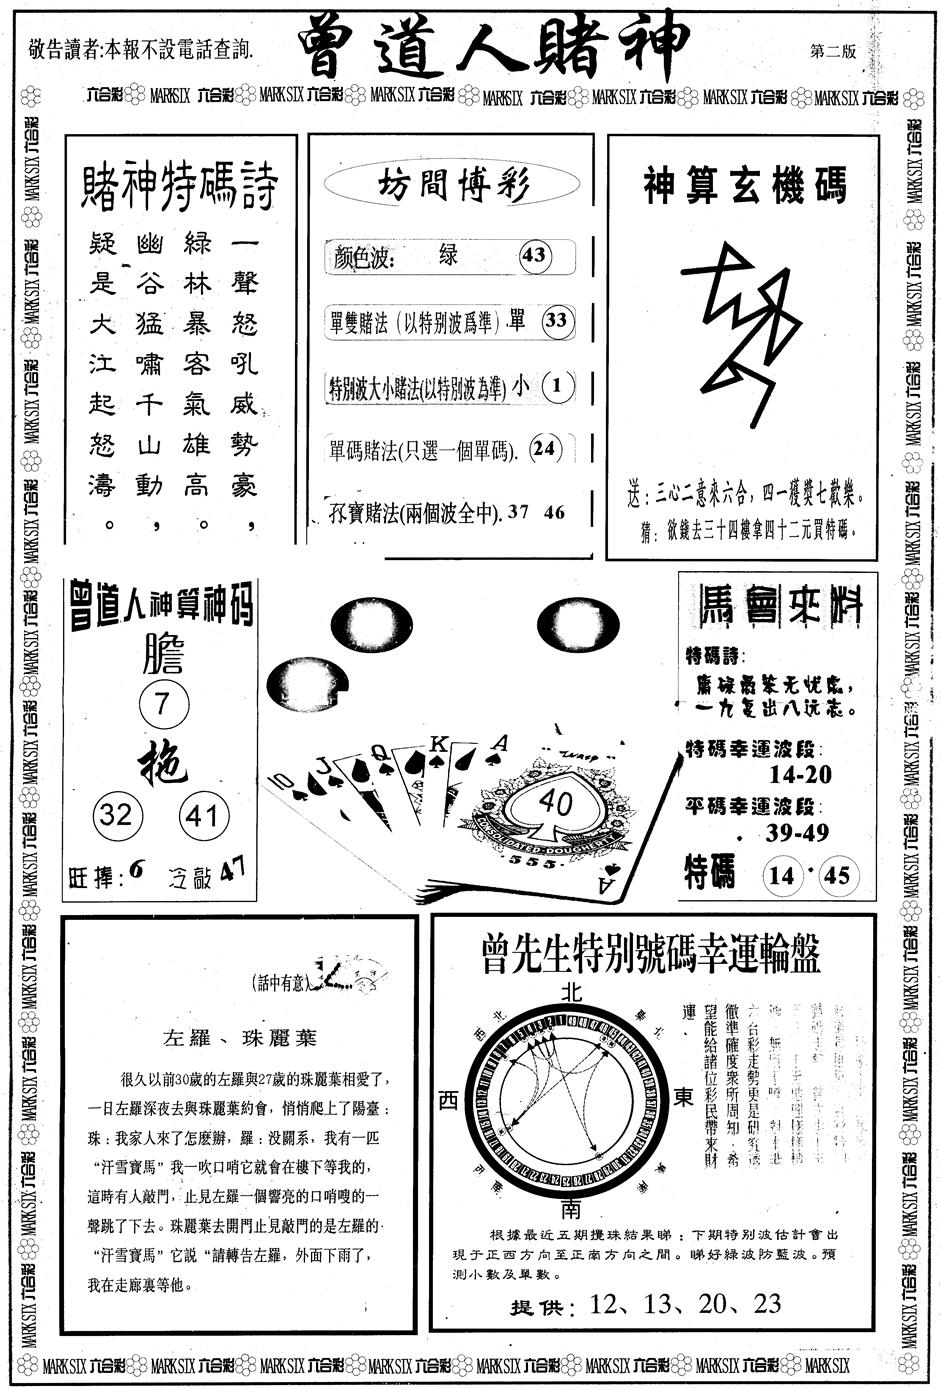 敬告讀者:本報不設電話查詢.
曾道人賭神
第二版
六合彩 MARKSIX 六合彩 MARK SIX 六合彩 MARK SIX 六合彩 MARK SIX 六合彩 MARK SIX 六合彩 MARK SIX 六合彩 MARK SIX 六合彩
賭神特碼詩
一聲怒吼威勢豪，
綠林暴客氣雄高。
幽谷猛嘯千山動，
疑是大江起怒濤。
坊間博彩
颜色波: 绿 43
單雙賭法（以特别波爲準）.單 33
特别波大小賭法(以特别波為準) 小 1
單碼賭法(只選一個單碼). 24
孖寶賭法(兩個波全中). 37 46
神算玄機碼
送：三心二意來六合，四一獲獎七歡樂。
猜：欲錢去三十四樓拿四十二元買特碼。
曾道人神算神码
膽
7
拖
32 41
旺擇：6 冷敲 47
10 J Q K A
40
CONSOLIDATED-DOUGHERTY
·555·
A
馬會來料
特碼詩:
庸碌最笨无忧虑，
一九复出八远志。
特碼幸運波段:
14-20
平碼幸運波段:
39-49
特碼 14·45
(話中有意)
左羅、珠麗葉
很久以前30歲的左羅與27歲的珠麗葉相愛了，
一日左羅深夜去與珠麗葉約會，悄悄爬上了陽臺：
珠：我家人來了怎麽辦，羅：没關系，我有一匹
“汗雪寶馬”我一吹口哨它就會在樓下等我的，
這時有人敲門，止見左羅一個響亮的口哨嗖的一
聲跳了下去。珠麗葉去開門止見敲門的是左羅的
“汗雪寶馬”它説“請轉告左羅，外面下雨了，
我在走廊裏等他。
曾先生特别號碼幸運輪盤
北
西北
東北
西
東
西南
東南
南
六合彩走勢更是研究透
徹準確度衆所周知.希
望能给諸位彩民帶來財
運、
根據最近五期攪珠結果睇：下期特别波估計會出
現于正西方向至正南方向之間。睇好綠波防藍波。預
測小數及單數。
提供：12、13、20、23
MARK SIX 六合彩 MARK SIX 六合彩 MARK SIX 六合彩 MARK SIX 六合彩 MARK SIX 六合彩 MARK SIX 六合彩 MARK SIX 六合彩 MARK SIX